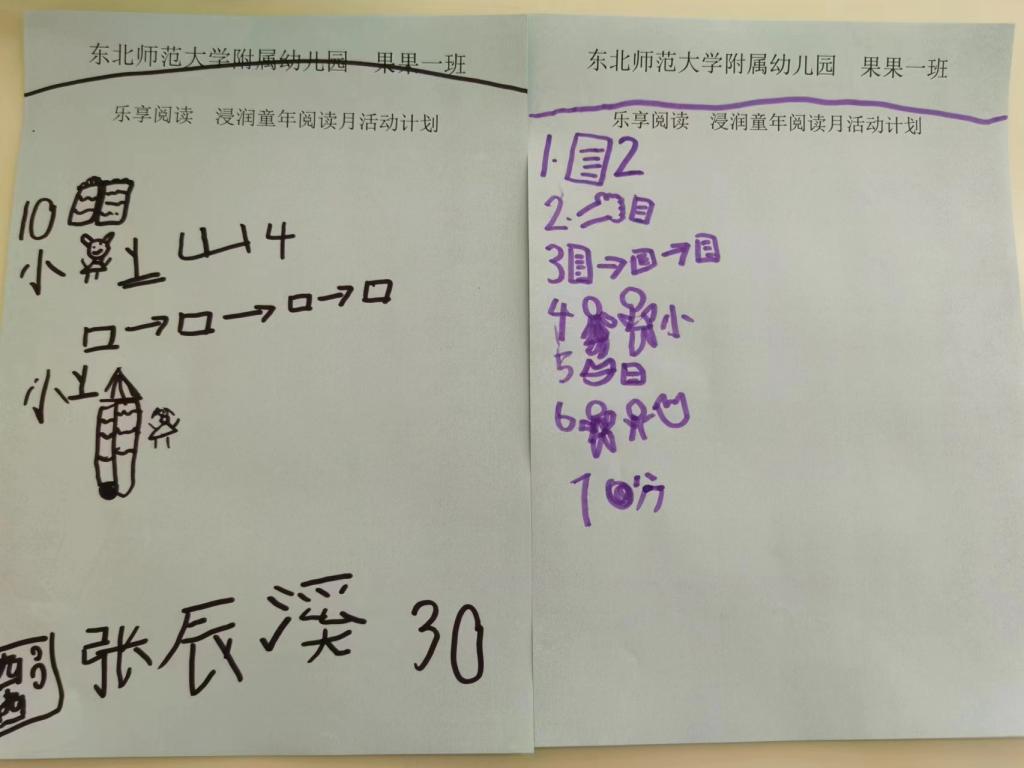 东北师范大学附属幼儿园 果果一班
乐享阅读 浸润童年阅读月活动计划
10
小 上 山 4
小 上
张辰溪 30
东北师范大学附属幼儿园 果果一班
乐享阅读 浸润童年阅读月活动计划
1. 2
2.
3
4 小
5
6